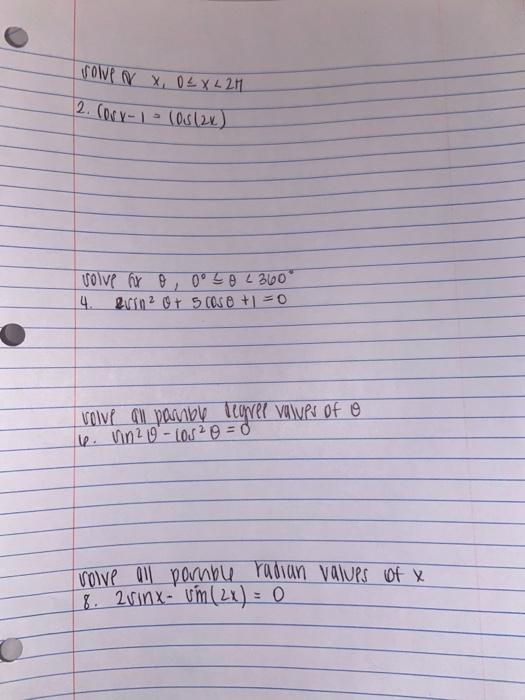 solve for x, 0 ≤ x < 2π
2. cosx - 1 = cos(2x)
solve for θ, 0° ≤ θ < 360°
4. 2sin² θ + 5cosθ + 1 = 0
solve all possible degree values of θ
6. sin²θ - cos²θ = 0
solve all possible radian values of x
8. 2sinx - sin(2x) = 0